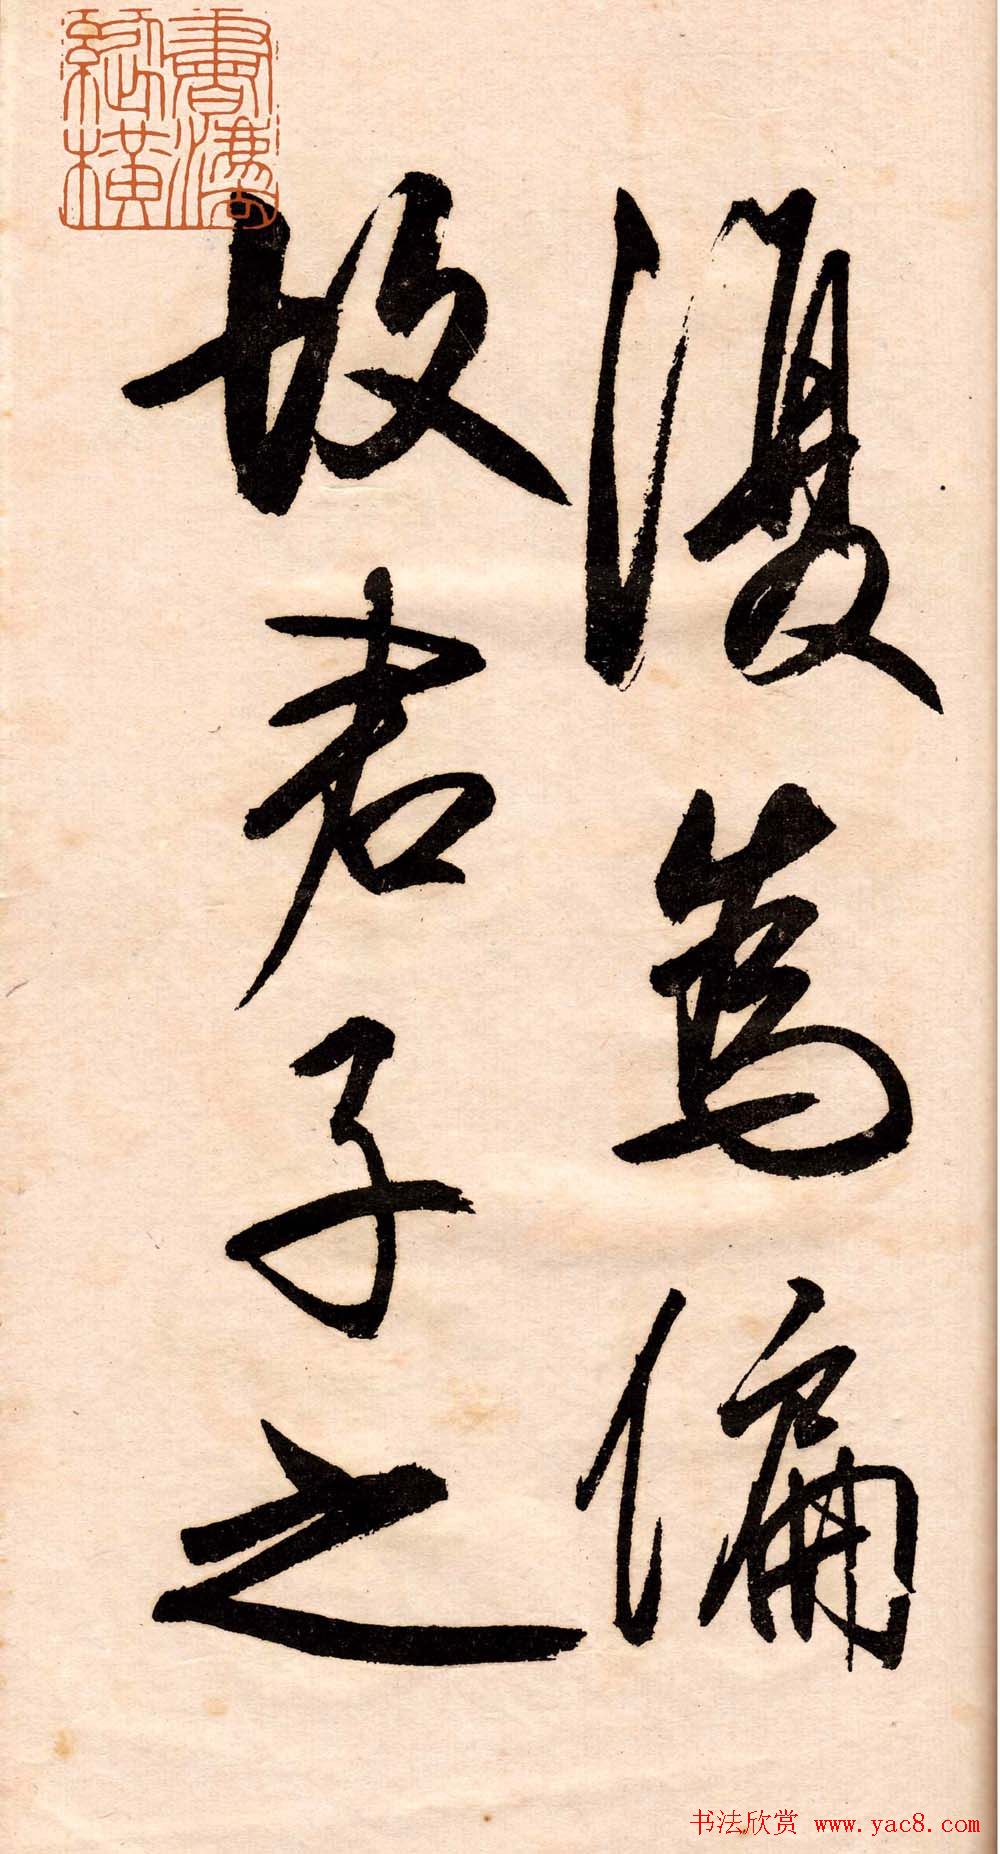 書灋縱橫
復為偏
故君子之
书法欣赏 www.yac8.com